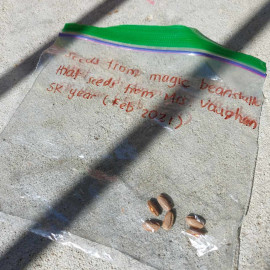 seeds from magic beanstalk
that seeds from Mrs Vaughen
5K year (Feb 2021)